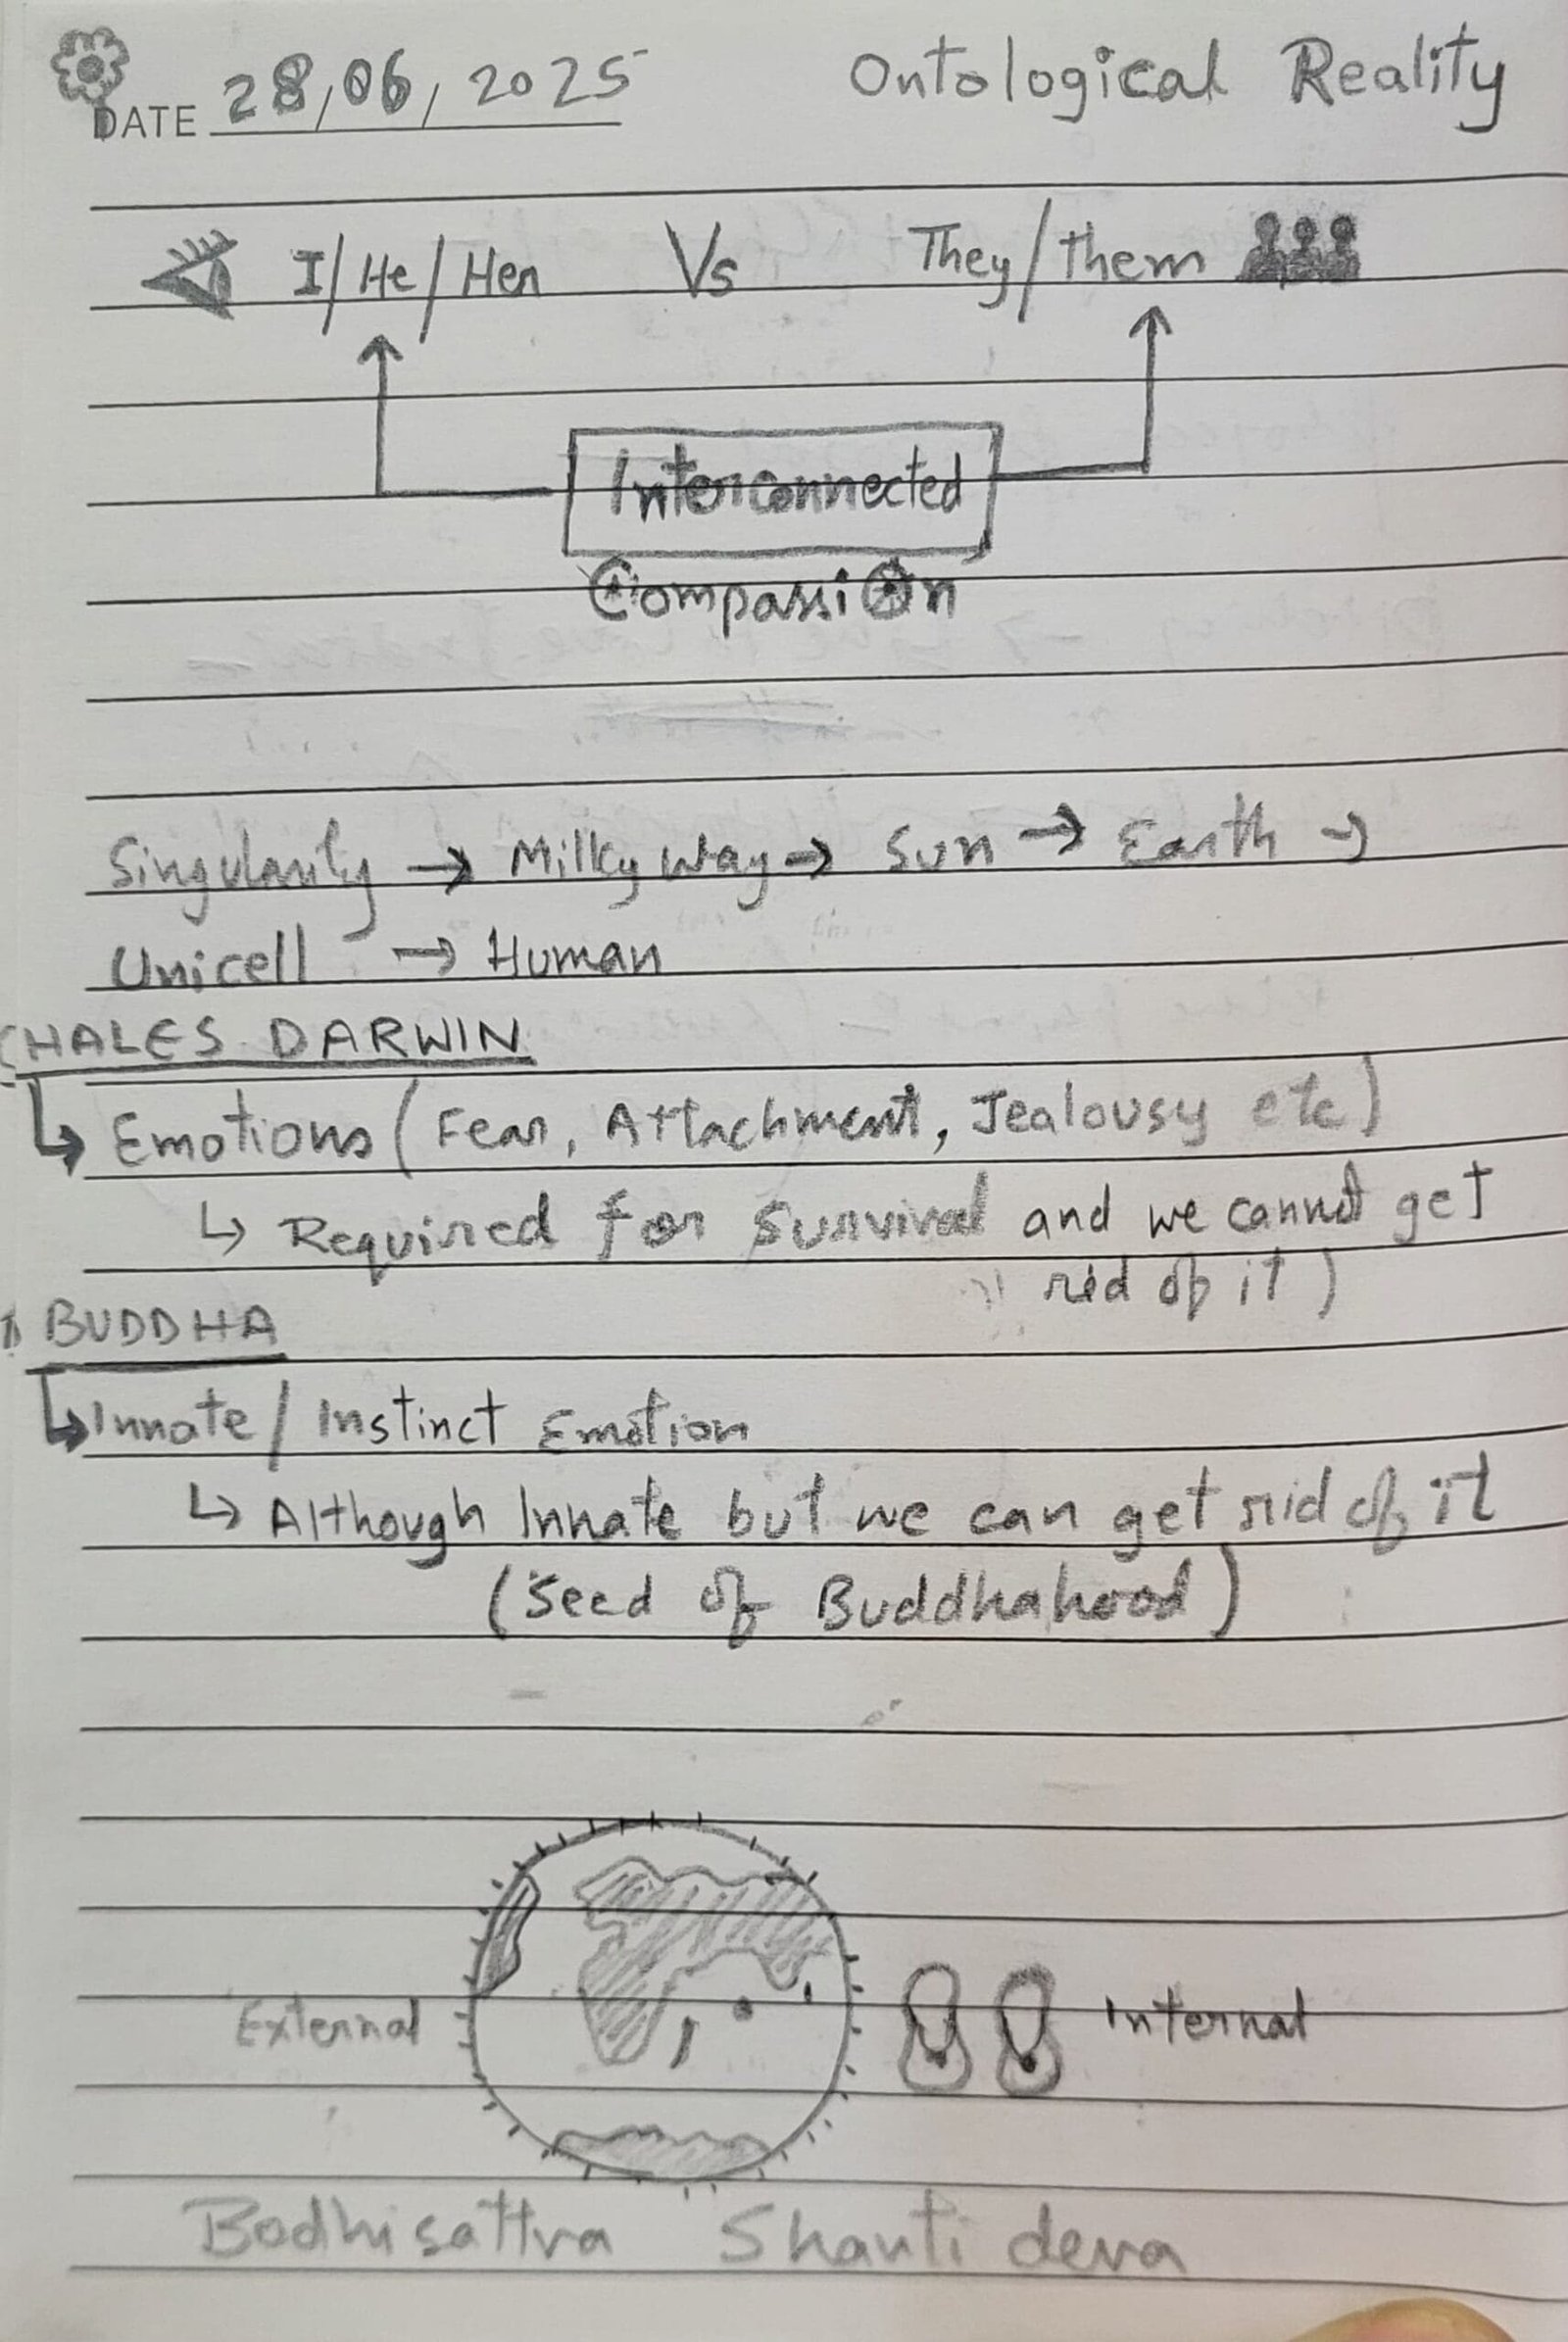 DATE 28/06/2025
Ontological Reality
I/He/Her Vs They/them
Interconnected
Compassion
Singularity → Milky Way → Sun → Earth →
Unicell → Human
CHALES DARWIN
↳ Emotions (Fear, Attachment, Jealousy etc)
↳ Required for Survival and we cannot get
rid of it)
BUDDHA
↳ Innate / Instinct Emotion
↳ Although Innate but we can get rid of it
(Seed of Buddhahood)
External Internal
Bodhisattva Shanti deva